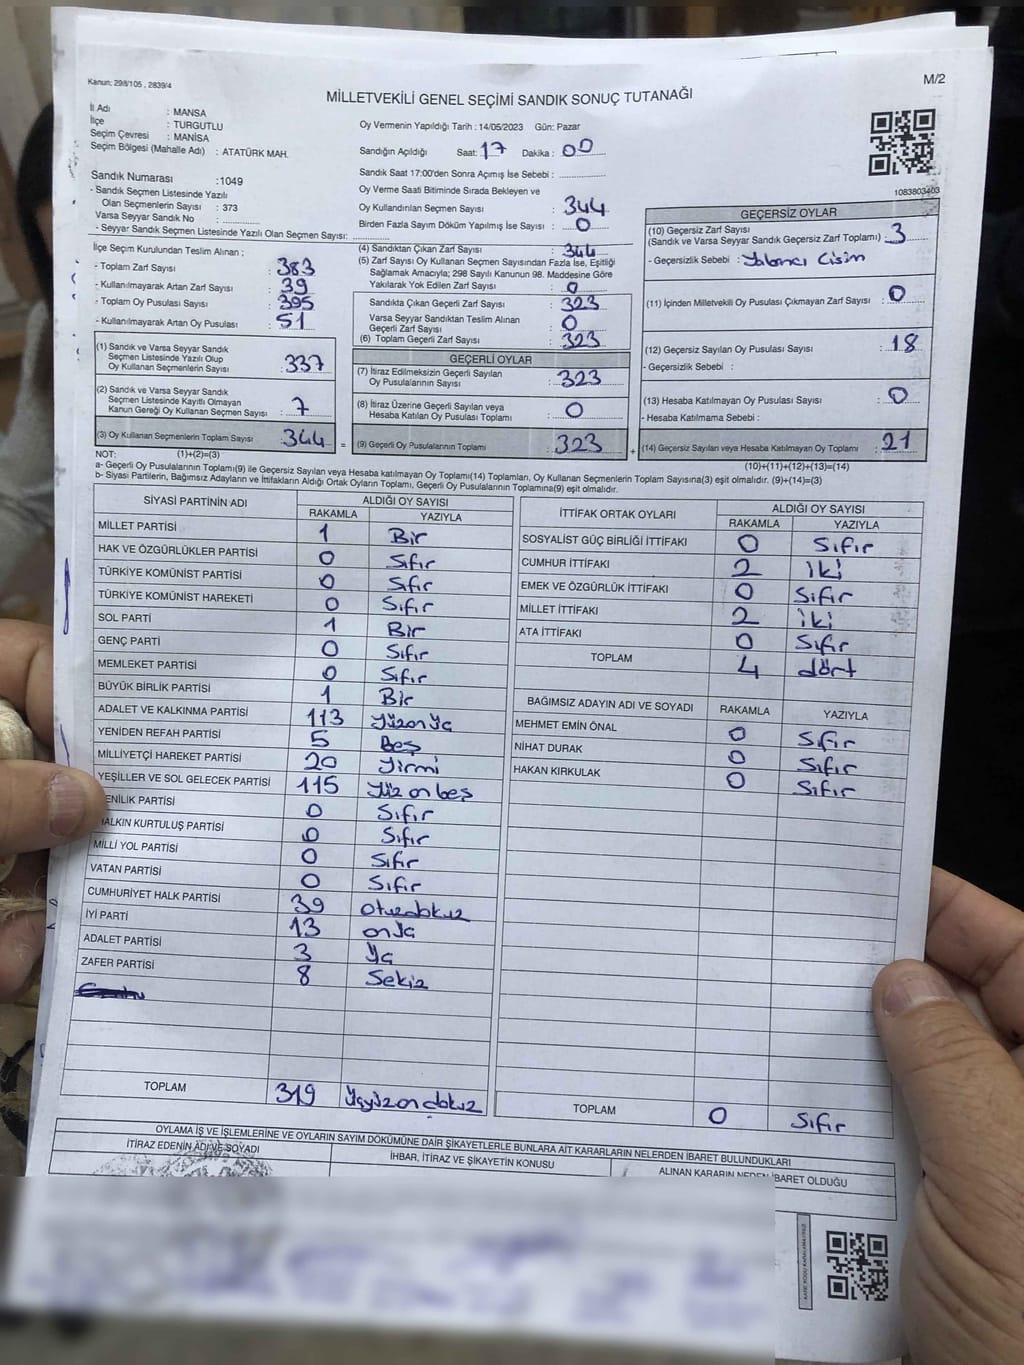 Kanun: 298/105 , 2839/4
M/2
MİLLETVEKİLİ GENEL SEÇİMİ SANDIK SONUÇ TUTANAĞI
İl Adı : MANSA
İlçe : TURGUTLU
Seçim Çevresi : MANİSA
Seçim Bölgesi (Mahalle Adı) : ATATÜRK MAH.
Sandık Numarası :1049
- Sandık Seçmen Listesinde Yazılı
Olan Seçmenlerin Sayısı : 373
Varsa Seyyar Sandık No :
- Seyyar Sandık Seçmen Listesinde Yazılı Olan Seçmen Sayısı:
Oy Vermenin Yapıldığı Tarih : 14/05/2023 Gün: Pazar
Sandığın Açıldığı Saat: 17 Dakika : 00
Sandık Saat 17:00'den Sonra Açımış İse Sebebi :
Oy Verme Saati Bitiminde Sırada Bekleyen ve
Oy Kullandırılan Seçmen Sayısı : 344
Birden Fazla Sayım Döküm Yapılmış İse Sayısı : 0
1083803403
İlçe Seçim Kurulundan Teslim Alınan ;
- Toplam Zarf Sayısı : 383
- Kullanılmayarak Artan Zarf Sayısı : 39
- Toplam Oy Pusulası Sayısı : 395
- Kullanılmayarak Artan Oy Pusulası : 51
(1) Sandık ve Varsa Seyyar Sandık
Seçmen Listesinde Yazılı Olup
Oy Kullanan Seçmenlerin Sayısı : 337
(2) Sandık ve Varsa Seyyar Sandık
Seçmen Listesinde Kayıtlı Olmayan
Kanun Gereği Oy Kullanan Seçmen Sayısı : 7
(3) Oy Kullanan Seçmenlerin Toplam Sayısı : 344
(4) Sandıktan Çıkan Zarf Sayısı : 344
(5) Zarf Sayısı Oy Kullanan Seçmen Sayısından Fazla İse, Eşitliği
Sağlamak Amacıyla; 298 Sayılı Kanunun 98. Maddesine Göre
Yakılarak Yok Edilen Zarf Sayısı : 0
Sandıkta Çıkan Geçerli Zarf Sayısı : 323
Varsa Seyyar Sandıktan Teslim Alınan
Geçerli Zarf Sayısı : 0
(6) Toplam Geçerli Zarf Sayısı : 323
GEÇERLİ OYLAR
(7) İtiraz Edilmeksizin Geçerli Sayılan
Oy Pusulalarının Sayısı : 323
(8) İtiraz Üzerine Geçerli Sayılan veya
Hesaba Katılan Oy Pusulası Toplamı : 0
= (9) Geçerli Oy Pusulalarının Toplamı : 323
GEÇERSİZ OYLAR
(10) Geçersiz Zarf Sayısı
(Sandık ve Varsa Seyyar Sandık Geçersiz Zarf Toplamı) : 3
- Geçersizlik Sebebi : Yabancı Cisim
(11) İçinden Milletvekili Oy Pusulası Çıkmayan Zarf Sayısı : 0
(12) Geçersiz Sayılan Oy Pusulası Sayısı : 18
- Geçersizlik Sebebi :
(13) Hesaba Katılmayan Oy Pusulası Sayısı : 0
- Hesaba Katılmama Sebebi :
+ (14) Geçersiz Sayılan veya Hesaba Katılmayan Oy Toplamı : 21
NOT: (1)+(2)=(3)
(10)+(11)+(12)+(13)=(14)
a- Geçerli Oy Pusulalarının Toplamı(9) ile Geçersiz Sayılan veya Hesaba katılmayan Oy Toplamı(14) Toplamları, Oy Kullanan Seçmenlerin Toplam Sayısına(3) eşit olmalıdır. (9)+(14)=(3)
b- Siyasi Partilerin, Bağımsız Adayların ve İttifakların Aldığı Ortak Oyların Toplamı, Geçerli Oy Pusulalarının Toplamına(9) eşit olmalıdır.
SİYASİ PARTİNİN ADI ALDIĞI OY SAYISI
RAKAMLA YAZIYLA
MİLLET PARTİSİ 1 Bir
HAK VE ÖZGÜRLÜKLER PARTİSİ 0 Sıfır
TÜRKİYE KOMÜNİST PARTİSİ 0 Sıfır
TÜRKİYE KOMÜNİST HAREKETİ 0 Sıfır
SOL PARTİ 1 Bir
GENÇ PARTİ 0 Sıfır
MEMLEKET PARTİSİ 0 Sıfır
BÜYÜK BİRLİK PARTİSİ 1 Bir
ADALET VE KALKINMA PARTİSİ 113 Yüzonüç
YENİDEN REFAH PARTİSİ 5 Beş
MİLLİYETÇİ HAREKET PARTİSİ 20 Yirmi
YEŞİLLER VE SOL GELECEK PARTİSİ 115 Yüz on beş
ENİLİK PARTİSİ 0 Sıfır
HALKIN KURTULUŞ PARTİSİ 0 Sıfır
MİLLİ YOL PARTİSİ 0 Sıfır
VATAN PARTİSİ 0 Sıfır
CUMHURİYET HALK PARTİSİ 39 otuzdokuz
İYİ PARTİ 13 onüç
ADALET PARTİSİ 3 üç
ZAFER PARTİSİ 8 Sekiz
TOPLAM 319 üçyüzondokuz
İTTİFAK ORTAK OYLARI ALDIĞI OY SAYISI
RAKAMLA YAZIYLA
SOSYALİST GÜÇ BİRLİĞİ İTTİFAKI 0 Sıfır
CUMHUR İTTİFAKI 2 iki
EMEK VE ÖZGÜRLÜK İTTİFAKI 0 Sıfır
MİLLET İTTİFAKI 2 iki
ATA İTTİFAKI 0 Sıfır
TOPLAM 4 dört
BAĞIMSIZ ADAYIN ADI VE SOYADI RAKAMLA YAZIYLA
MEHMET EMİN ÖNAL 0 Sıfır
NİHAT DURAK 0 Sıfır
HAKAN KIRKULAK 0 Sıfır
TOPLAM 0 Sıfır
OYLAMA İŞ VE İŞLEMLERİNE VE OYLARIN SAYIM DÖKÜMÜNE DAİR ŞİKAYETLERLE BUNLARA AİT KARARLARIN NELERDEN İBARET BULUNDUKLARI
İTİRAZ EDENİN ADI VE SOYADI
İHBAR, İTİRAZ VE ŞİKAYETİN KONUSU
ALINAN KARARIN NEDEN İBARET OLDUĞU